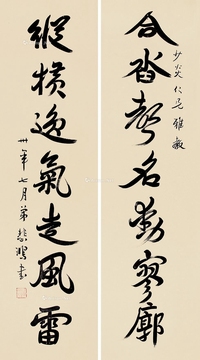 合沓聲名動寥廓
少炎仁兄雅教
縱橫逸氣走風雷
卅年七月弟悲鴻書